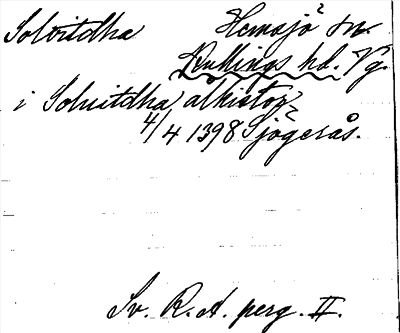 Solvitdha Hemsjö sn.
Kullings hd. Vg.
i Soluitdha alkistor
4/4 1398 Sjögerås.
Sv. R. A. perg. II.